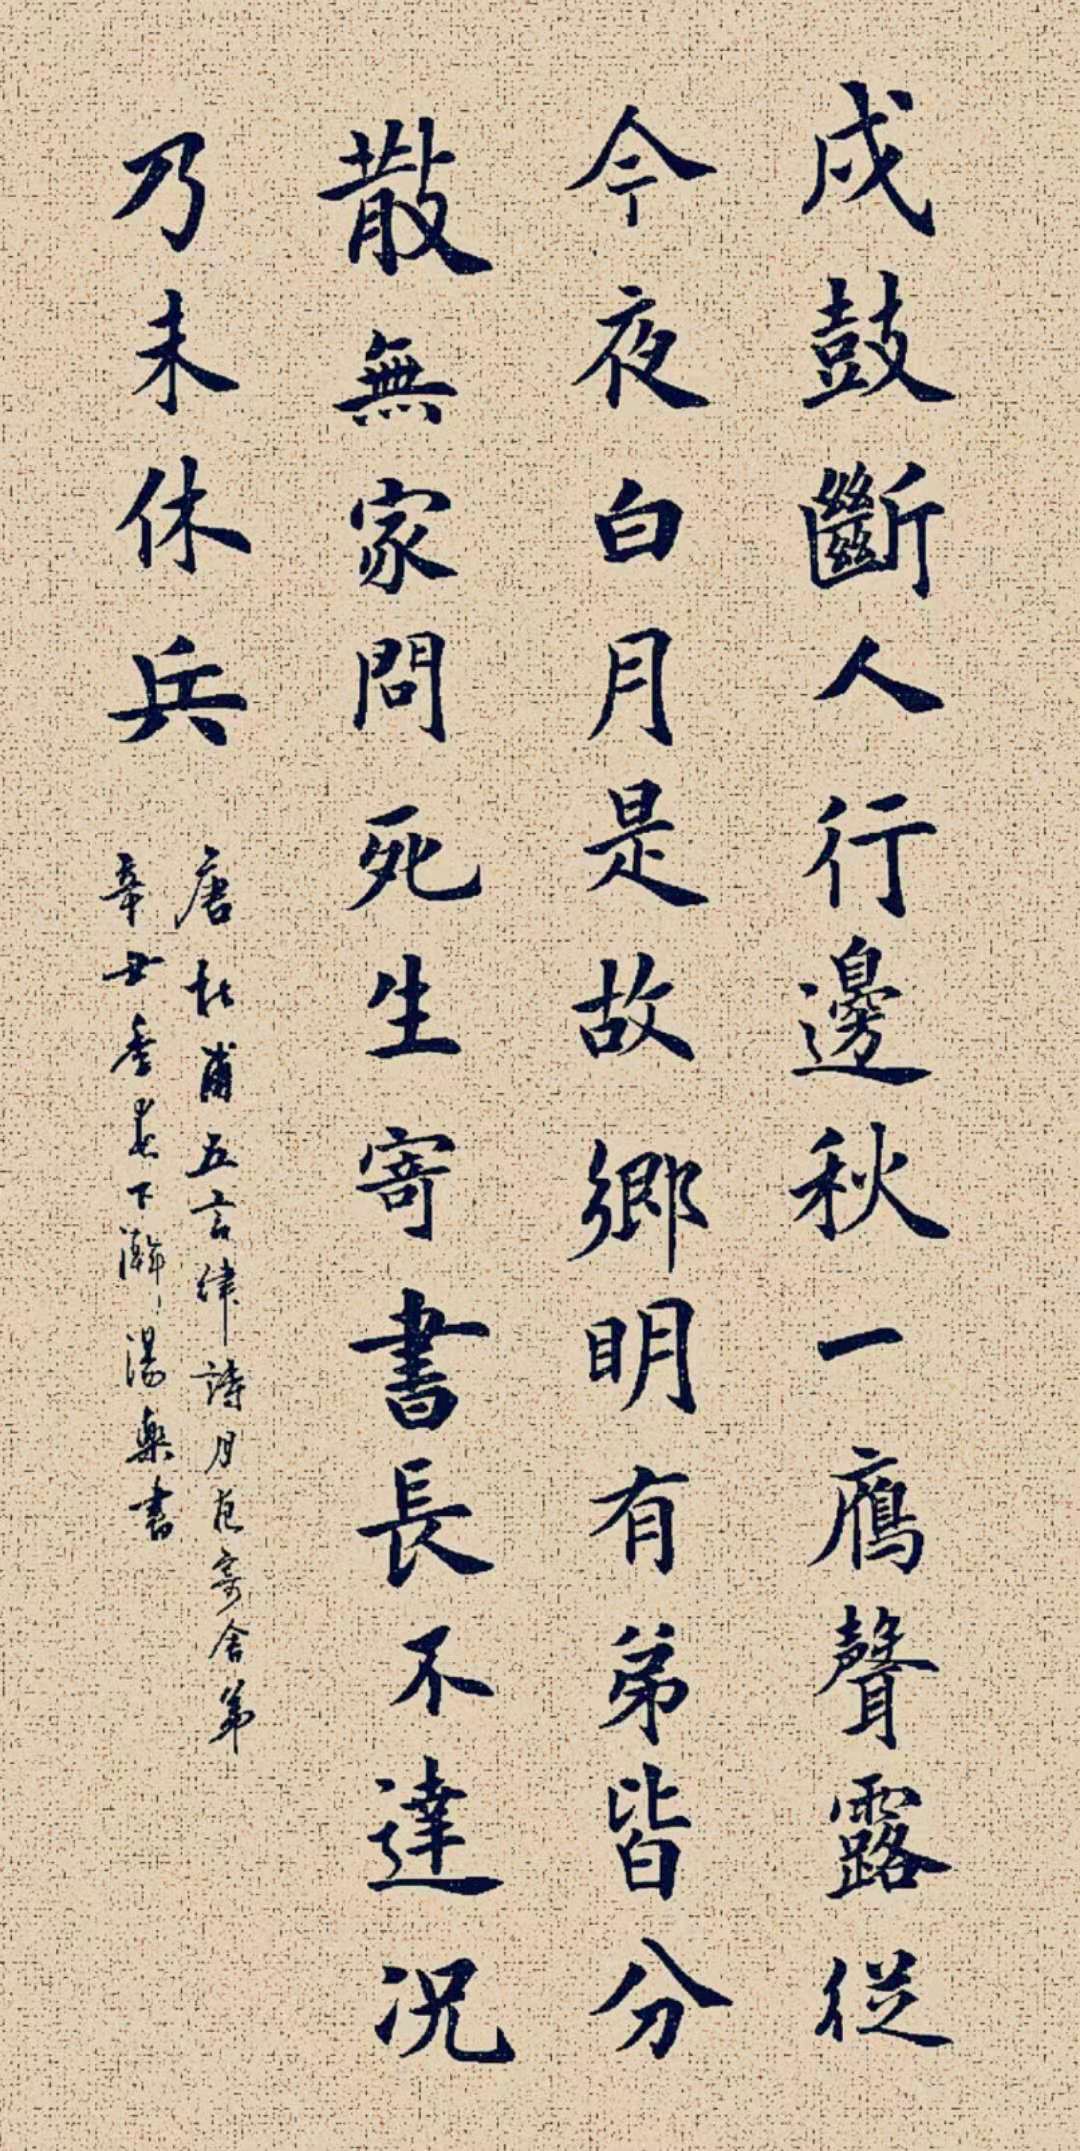 戍鼓斷人行邊秋一鴈聲露從
今夜白月是故鄉明有弟皆分
散無家問死生寄書長不達況
乃未休兵
唐杜甫五言律詩月夜寄舍弟
辛丑季春下瀚湯樂書